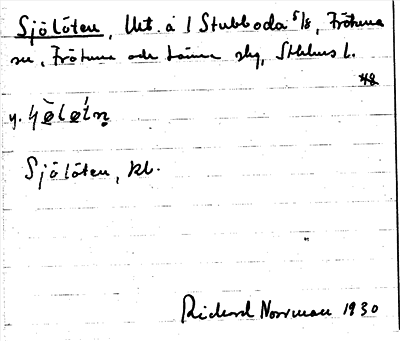 Sjölöten, Utt. å 1 Stubboda 5/8, Frötuna
sn, Frötuna och Länna skg, Sthlms l.
42
y.
Sjölöten, kl.
Richard Norrman 1930